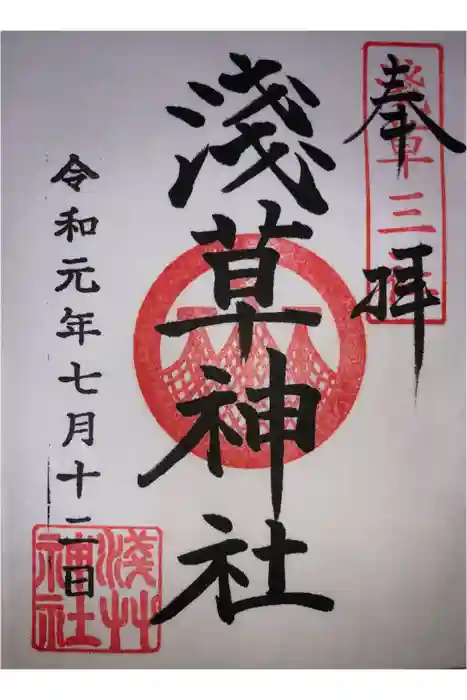 奉拝
淺草三
淺草神社
令和元年七月十二日
淺草
神社